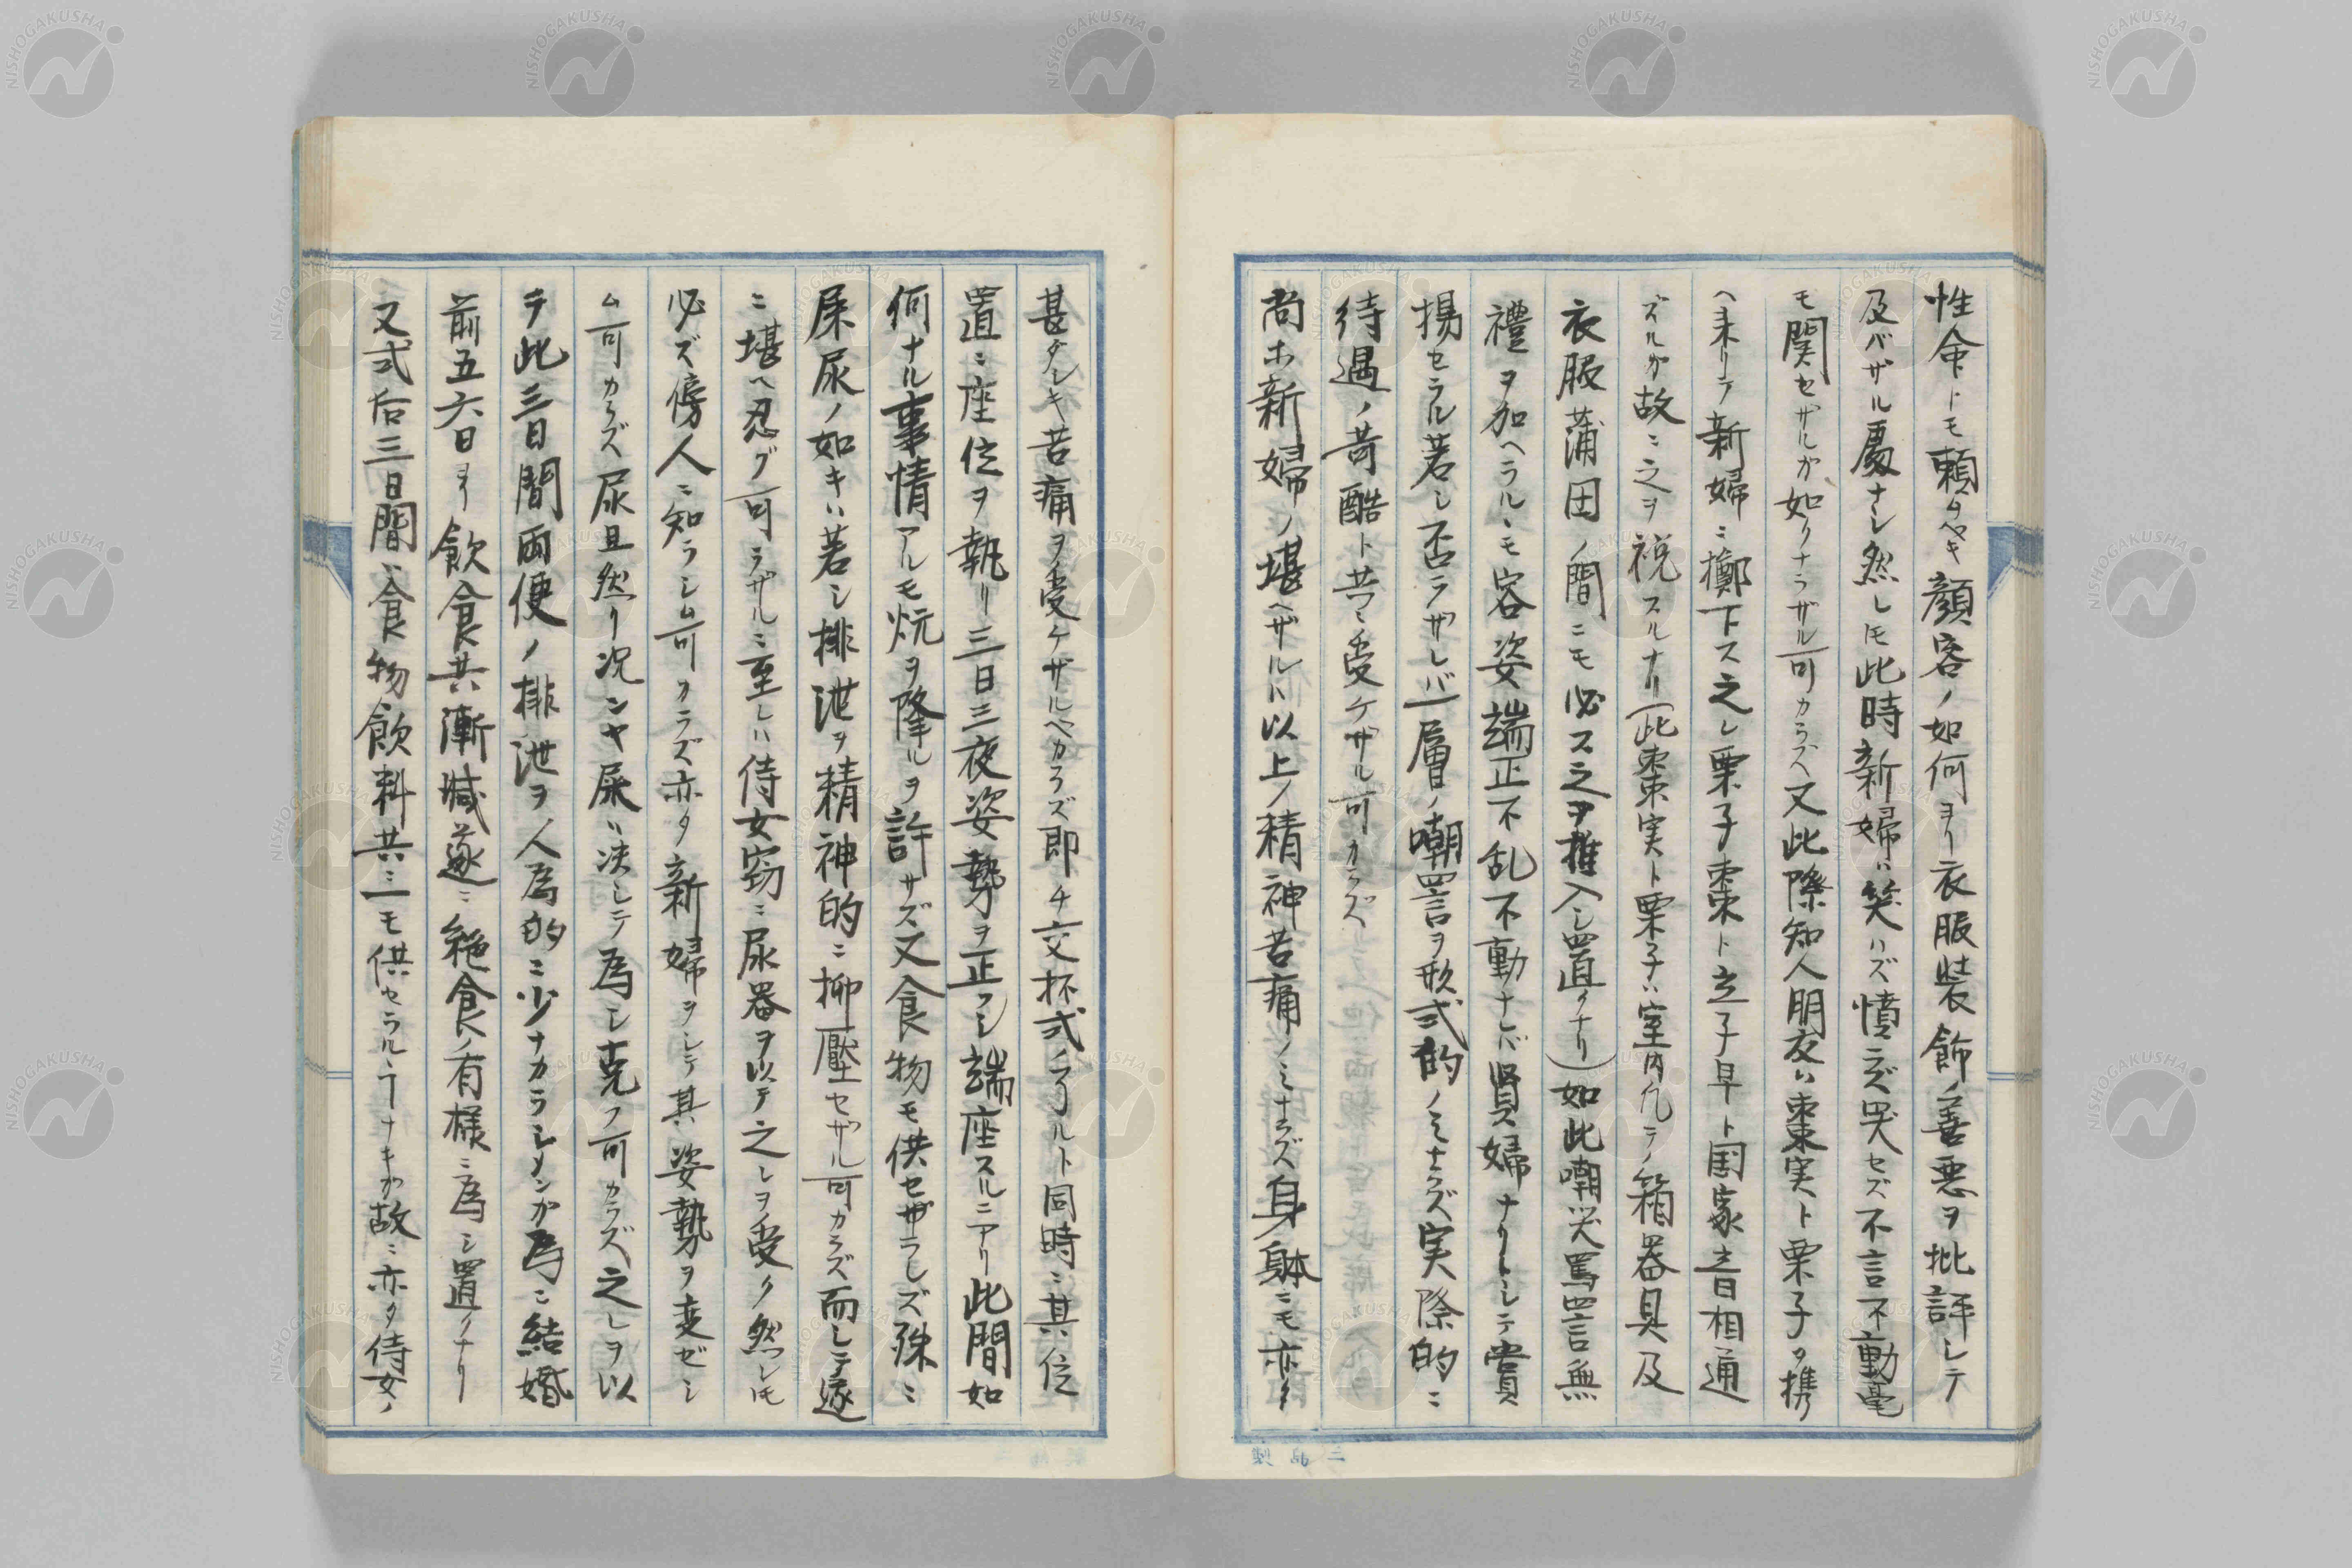 性命トモ頼ムベキ顔容ノ如何ヨリ衣服装飾ノ善悪ヲ批評シテ
及バザル處ナシ然レ𪜈此時新婦ハ笑ハズ憤ラズ哭セズ不言不動毫
モ関セザルガ如クナラザル可カラズ又此際知人朋友ハ棗実ト栗子ヲ携
ヘ来リテ新婦ニ擲下ス之レ栗子棗ト立子早ト国家音相通
ズルガ故ニ之ヲ祝スルナリ(此棗実ト栗子ハ室内凡テノ箱器具及
衣服蒲団ノ間ニモ必ス之ヲ推入シ置クナリ)如此嘲笑罵詈無
禮ヲ加ヘラルヽモ容姿端正不乱不動ナレバ賢婦ナリトシテ賞
揚セラル若シ否ラザレバ一層ノ嘲詈ヲ形式的ノミナラズ実際的ニ
待遇ノ苛酷ト共ニ受ケザル可カラズ
尚ホ新婦ノ堪ヘザルハ以上ノ精神苦痛ノミナラズ身躰ニモ亦タ
甚ダシキ苦痛ヲ受ケザルベカラズ即チ交杯式ヲ了ルト同時ニ其位
置ニ座位ヲ執リ三日三夜姿勢ヲ正フシ端座スルニアリ此間如
何ナル事情アルモ炕ヲ降ルヲ許サズ又食物モ供セザラレズ殊ニ
屎尿ノ如キハ若シ排泄ヲ精神的ニ抑壓セザル可カラズ而シテ遂
ニ堪ヘ忍グ可ラザルニ至レハ侍女窃ニ尿器ヲ以テ之レヲ受ク然レ𪜈
必ズ傍人ニ知ラシム可カラズ亦タ新婦ヲシテ其姿勢ヲ変ゼシ
ム可カラズ尿且然リ况ンヤ屎ハ决シテ為シ克フ可カラズ之レヲ以
テ此三日間両便ノ排泄ヲ人為的ニ少ナカラシメンガ為ニ結婚
前五六日ヨリ飲食共漸減遂ニ絶食ノ有様ニ為シ置クナリ
又式后三日間ハ食物飲料共ニ一モ供セラルヽヿナキガ故ニ亦タ侍女ノ
NISHOGAKUSHA